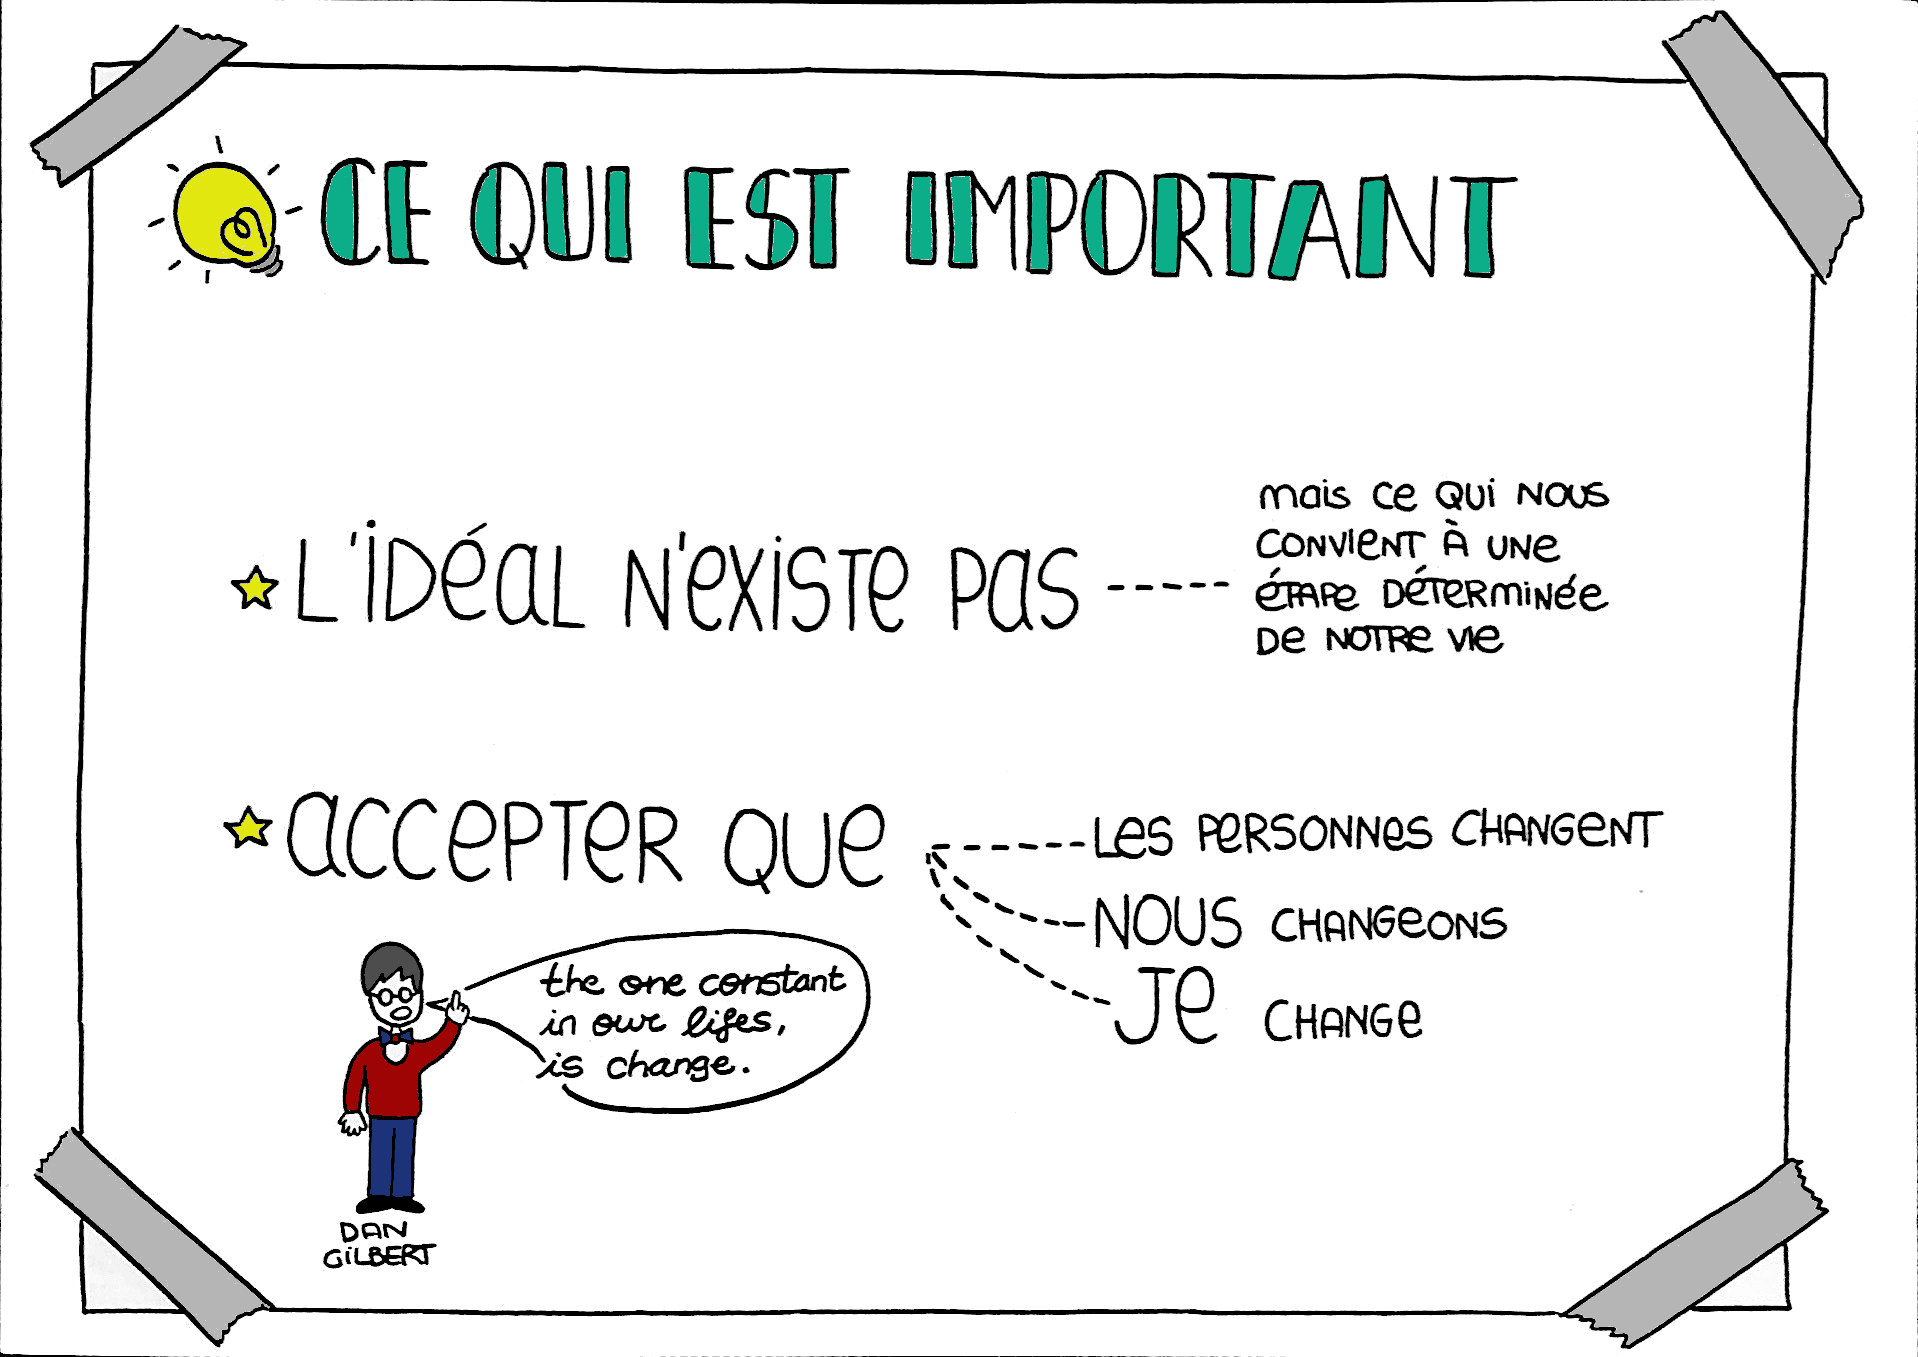 CE QUI EST IMPORTANT
L'iDéaL N'exiSTe Pas
mais ce qui nous
convient à une
étape déterminée
de notre vie
accepter que
Les personnes changent
NOUS changeons
Je change
the one constant
in our lifes,
is change.
DAN
GILBERT